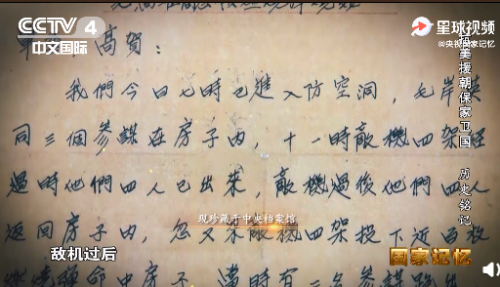 CCTV 4
中文国际
星球视频
@央视国家记忆
高賀：
我們今日七時已進入防空洞，毛岸英
同三個參謀在房子內，十一時敵機四架經
過時他們四人已出來，敵機過後他們四人
返回房子內，忽又來敵機四架投下近百枚
燃燒彈命中房子，當時有二名參謀跑出
现珍藏于中央档案馆
抗美援朝保家卫国 历史铭记
敌机过后
国家记忆